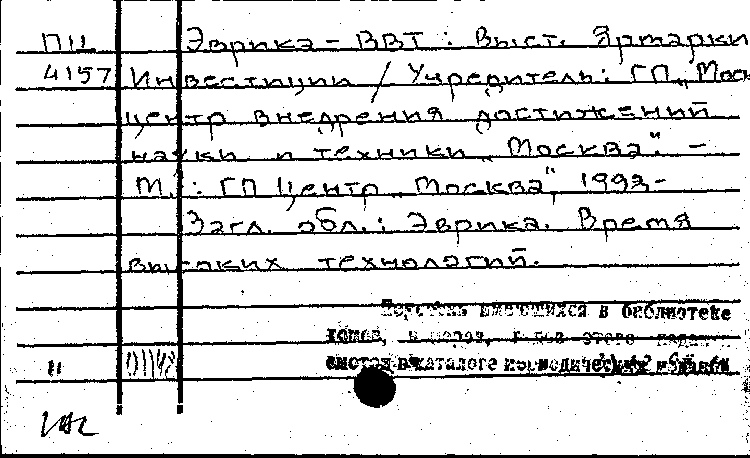 П11 Эврика – ВВТ : Выст. Ярмарки
4157 Инвестиции / Учредитель: ГП „Моск
центр внедрения достижений
науки и техники „Москва". –
М.: ГП Центр „Москва", 1992–
Загл. обл.: Эврика. Время
высоких технологий.
Перечень имеющихся в библиотеке
томов, номеров, годов этого
в каталоге периодических изданий